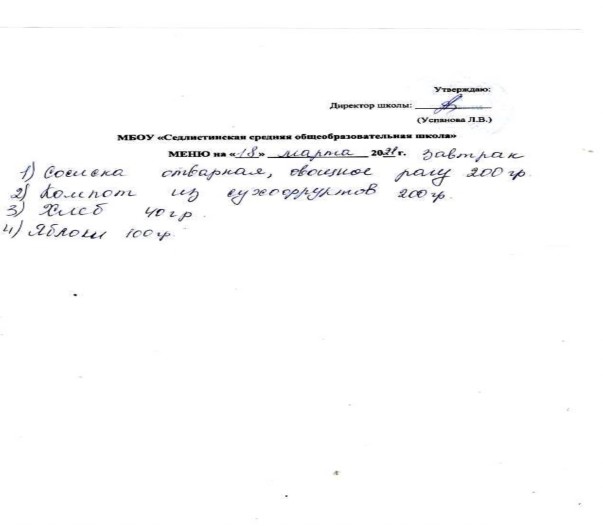 Утверждаю:
Директор школы:
(Успанова Л.В.)
МБОУ «Седлистинская средняя общеобразовательная школа»
МЕНЮ на «18» марта 2021 г. Завтрак
1) Сосиска отварная, овощное рагу 200 гр.
2) Компот из сухофруктов 200 гр.
3) Хлеб 40 гр.
4) Яблоки 100 гр.